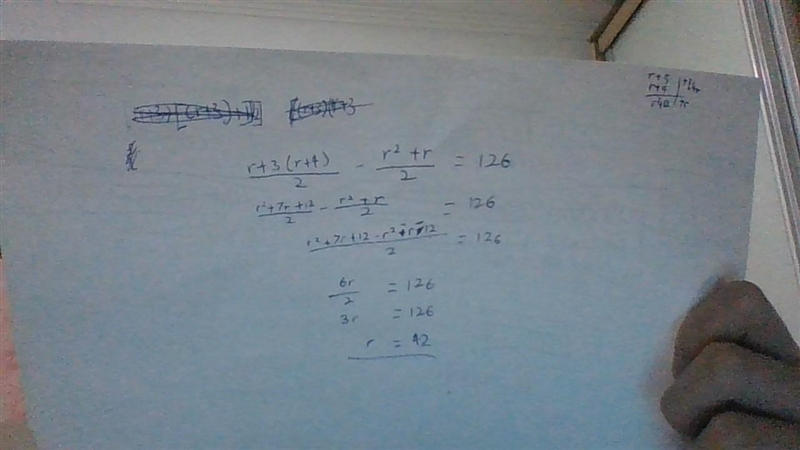 r+5
r+4 | +4r
r²+12 | 7r
r+3(r+4)/2 - r²+r/2 = 126
r²+7r+12/2 - r²+r/2 = 126
r²+7r+12-r²-r-12/2 = 126
6r/2 = 126
3r = 126
r = 42